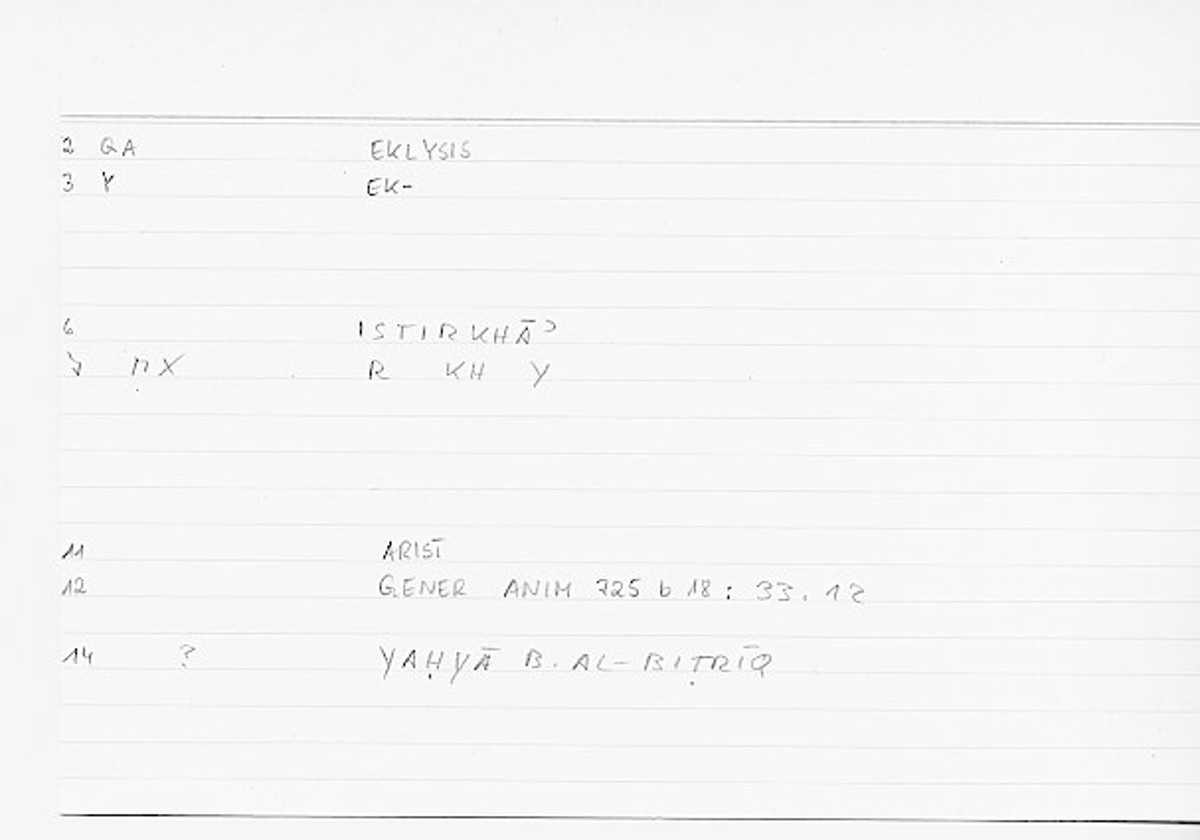 2 QA EKLYSIS
3 Y EK-
6 ISTIRKHĀʾ
7 ṆX R KH Y
11 ARIST
12 GENER ANIM 725 b 18 : 33.12
14 ? YAḤYĀ B. AL-BIṬRĪQ